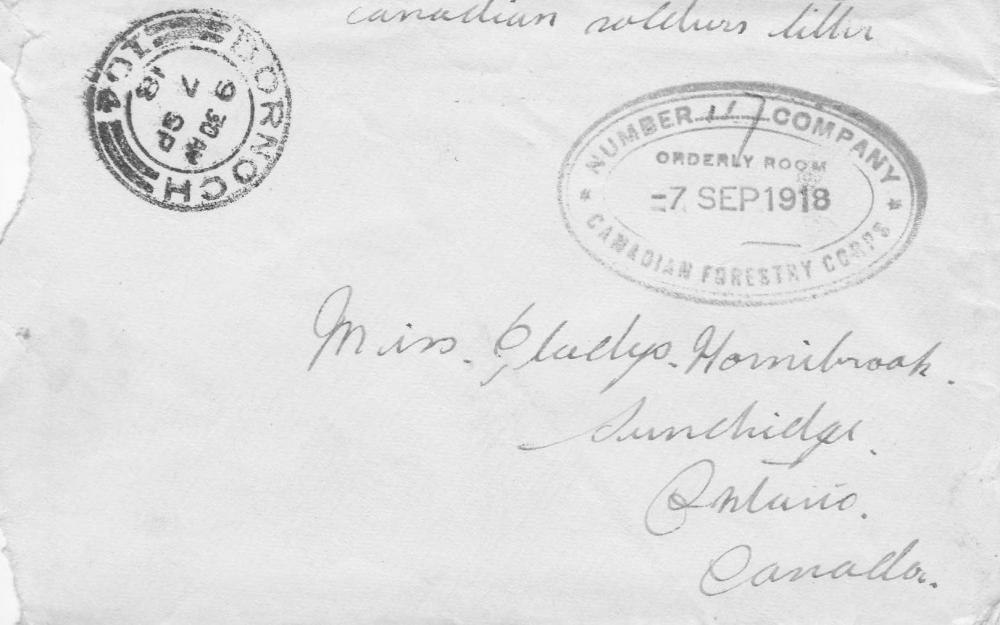 canadian soldiers letter
DORNOCH
104
7 SP
18
NUMBER 117 COMPANY
ORDERLY ROOM
-7 SEP 1918
* CANADIAN FORESTRY CORPS *
Miss. Gladys. Hornibrook.
Sundridge.
Ontario.
Canada.